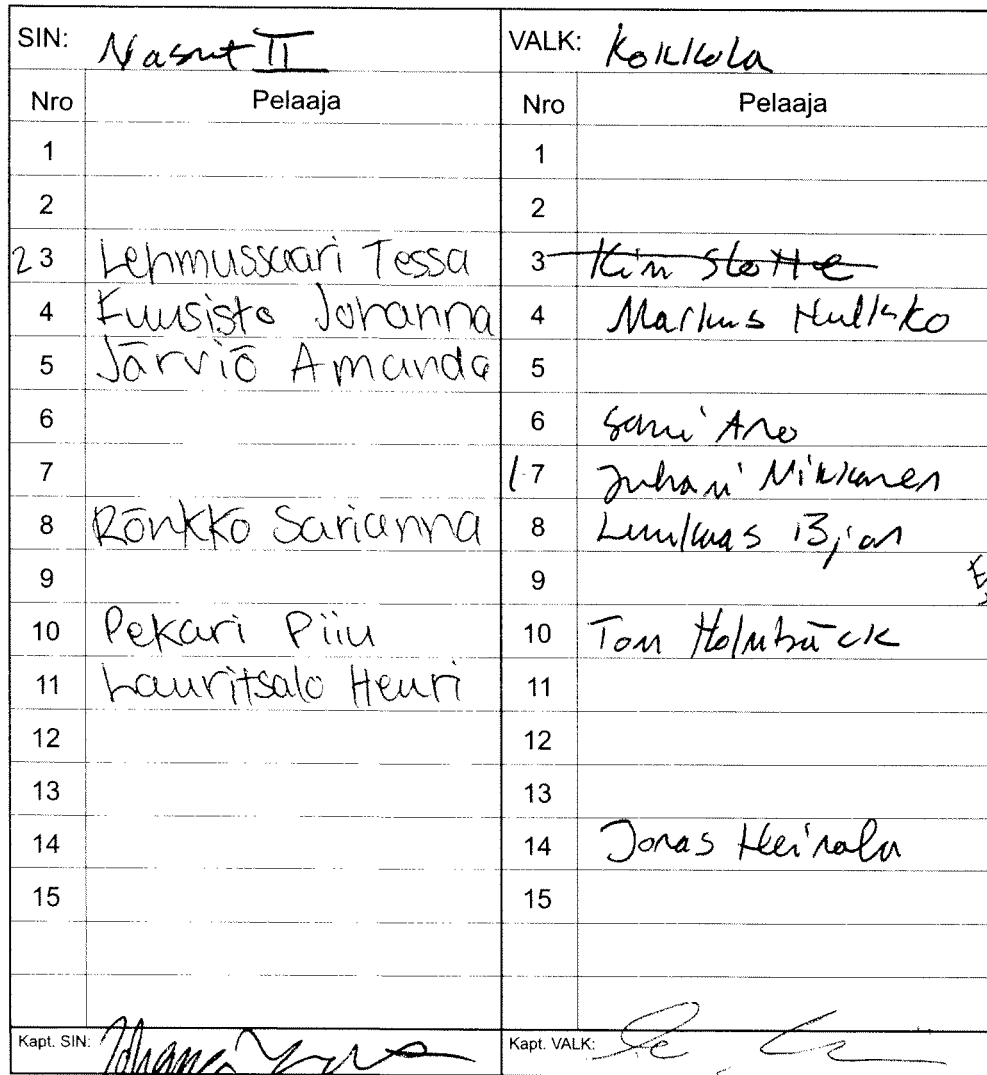 SIN: Nasut II
Nro Pelaaja
1
2
23 Lehmussaari Tessa
4 Kuusisto Johanna
5 Järviö Amanda
6
7
8 Rönkkö Sarianna
9
10 Pekari Piiu
11 Lauritsalo Henri
12
13
14
15
Kapt. SIN:
VALK: Kokkola
Nro Pelaaja
1
2
3 Kim Slotte
4 Markus Hullkko
5
6 Sami Aro
17 Juhani Nikkanen
8 Björn
9
10 Tom Holmbäck
11
12
13
14 Jonas Heinola
15
Kapt. VALK: